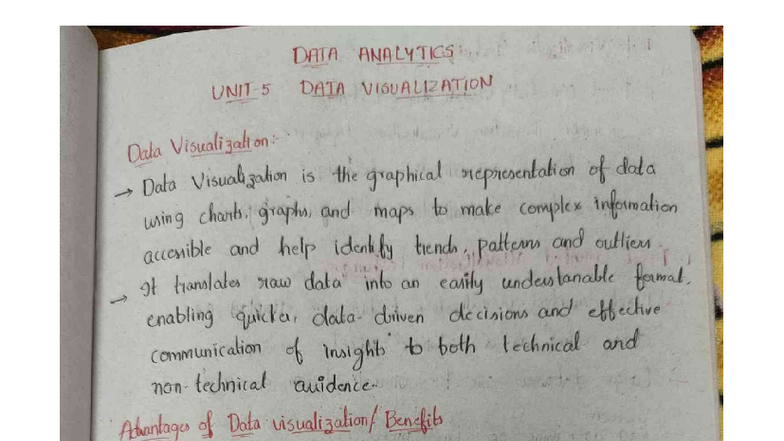 DATA ANALYTICS:
UNIT-5 DATA VISUALIZATION
Data Visualization:-
→ Data Visualization is the graphical representation of data
using charts, graphs, and maps to make complex information
accessible and help identify trends, patterns and outliers.
→ It translates raw data into an easily understanable format,
enabling quicker, data-driven decisions and effective
communication of insights to both technical and
non-technical auidence.
Advantages of Data visualization/ Benefits